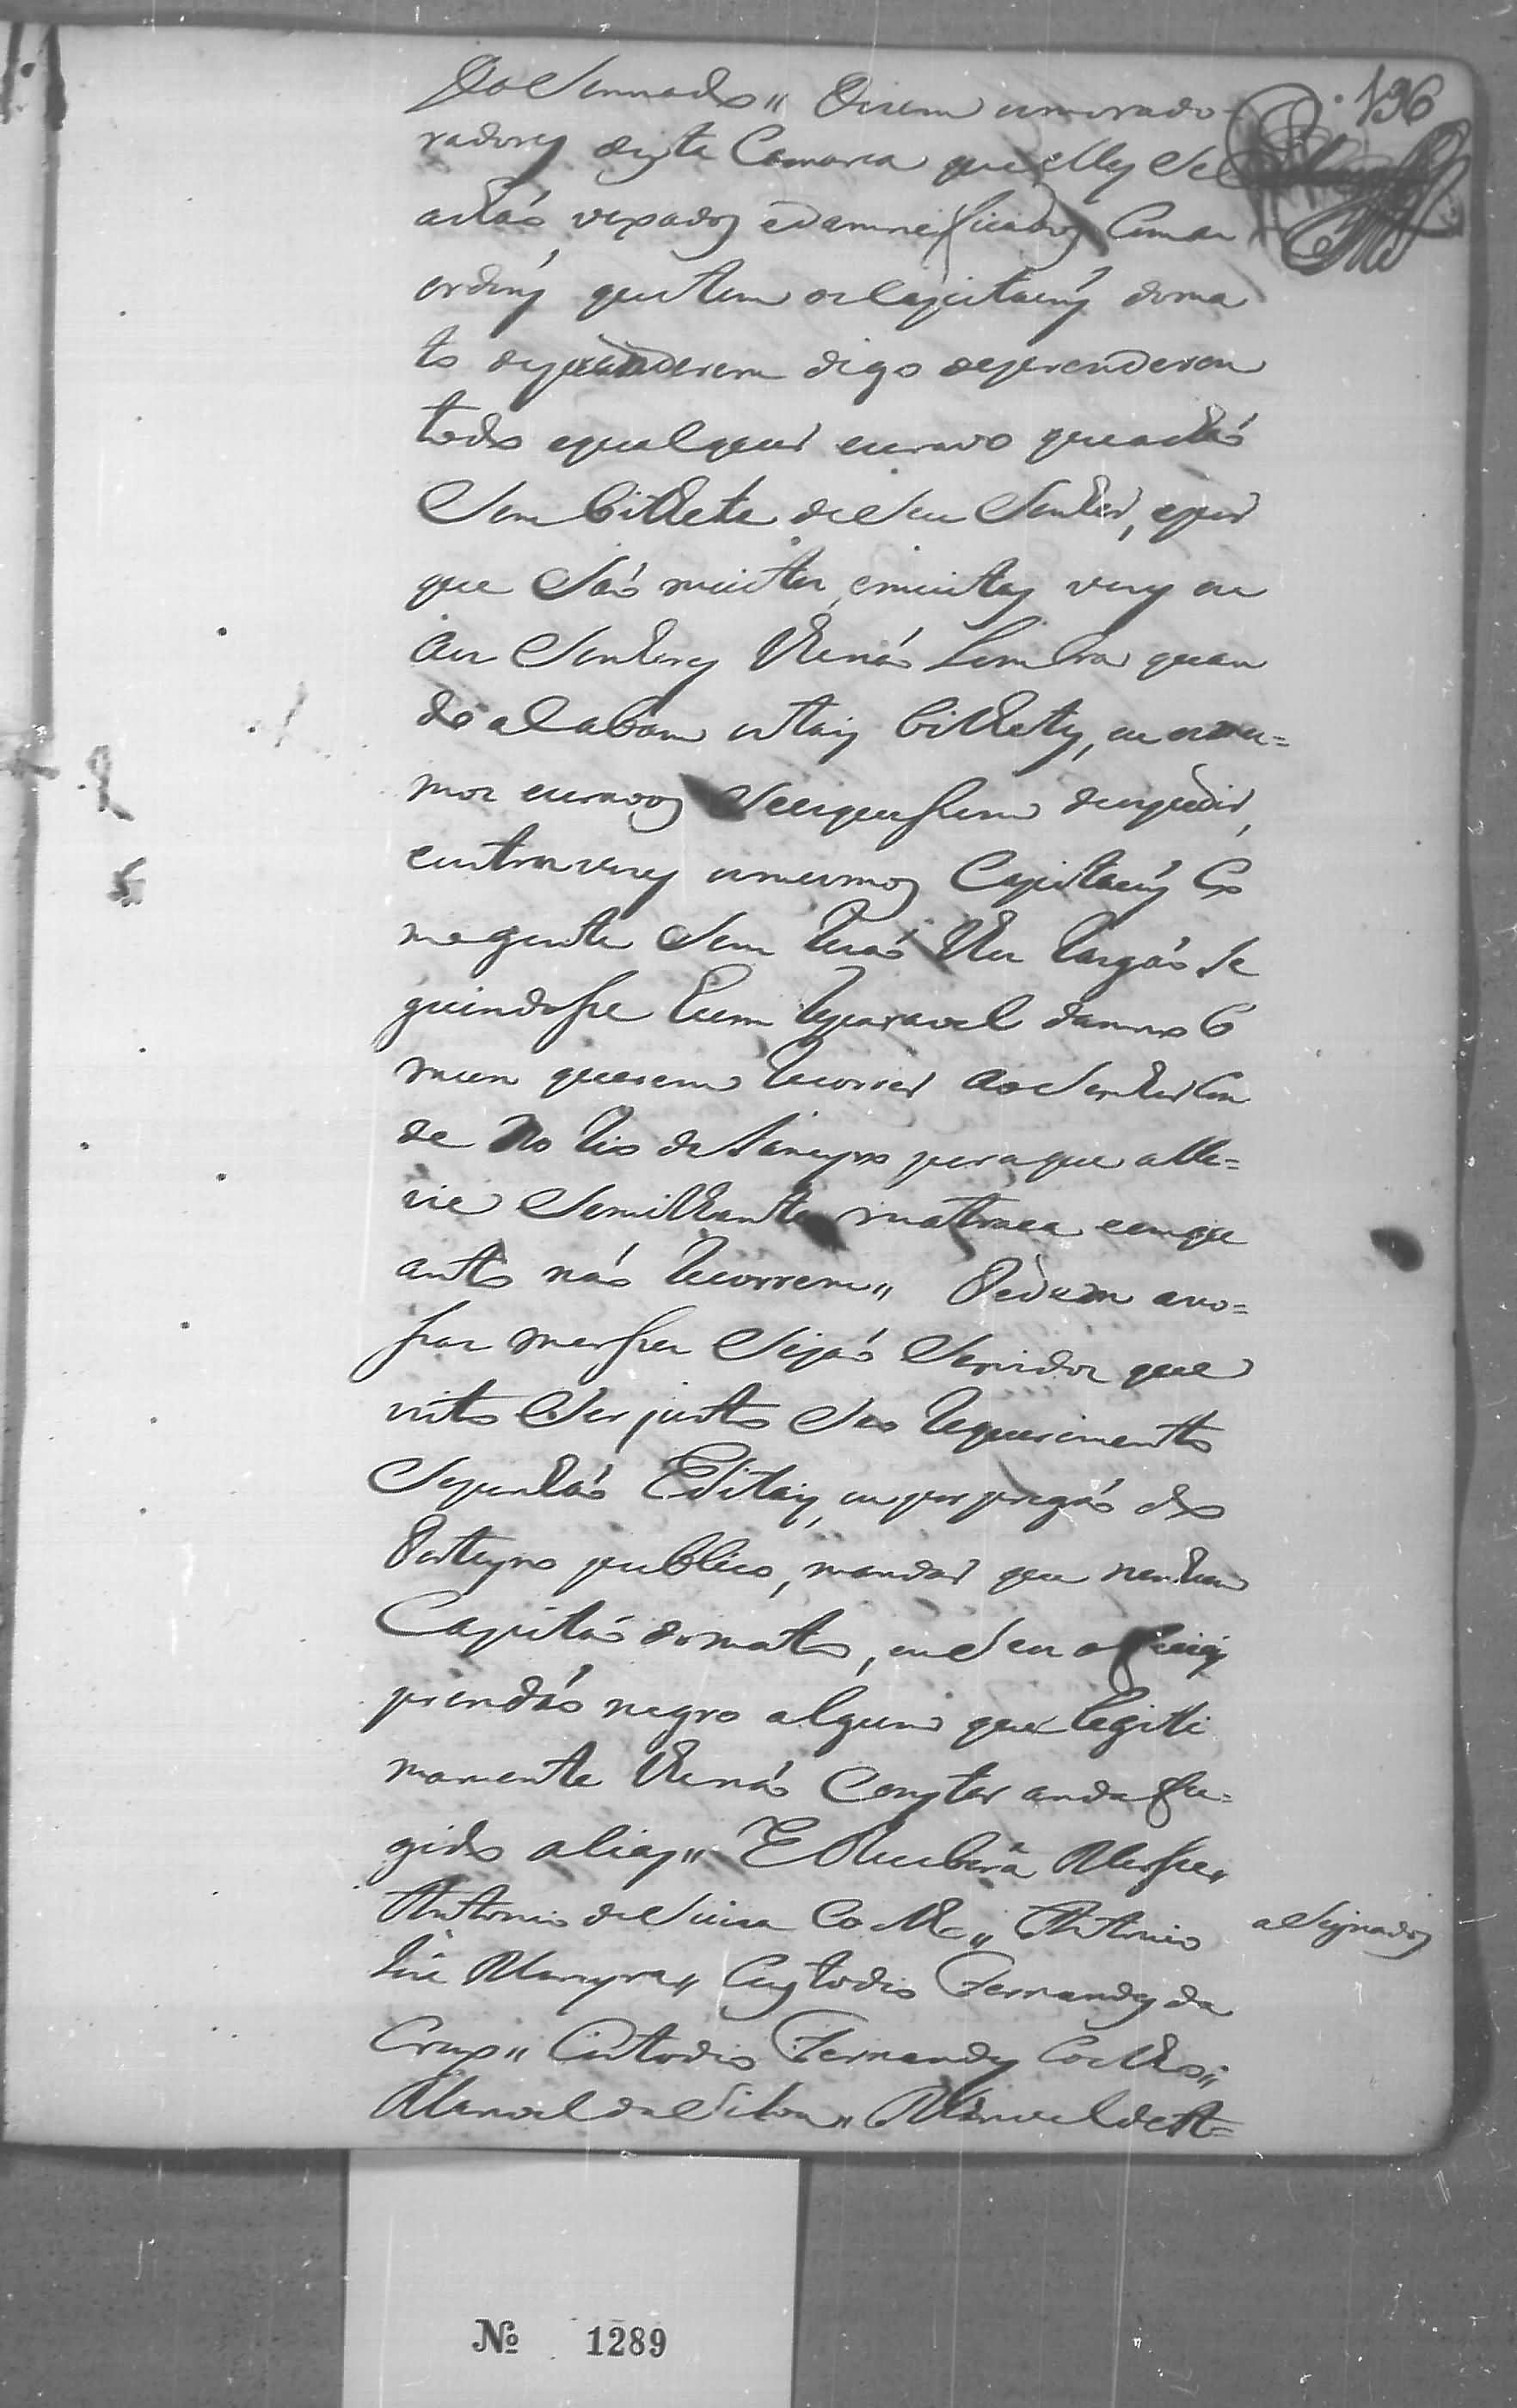 do Sennado" Dizem osmorado-
radores desta Comarca que elles se
achaõ vexados edamneficados Com as
ordens que tem os Capitaens doma
to deprenderem digo deprenderem
todo equalquer escravo que achaõ
Sem bilhete de seu Senhor, epor
que Saõ muitas, emuitas vezes ou
aos Senhores lhe naõ Lembra quan
do acabam ostais bilhetes, ou os mes=
mos escravos Se esquessem de os pedir,
eoutras vezes os mesmos Capitaens Co
mo gente Sem Rezaõ lhes Rasgaõ Se
guindosse hum Reparavel damno C
mun querem Recorrer ao Senhor Con
de no Rio de Janeyro para que alle=
vie Semilhante matraca eem qu
anto naõ Recorrem" Pedem avo=
ssas merses Sejaõ Servidos que
visto Ser justo Seu Requerimento
Se ponhaõ Editais, ou por pregaõ do
Porteyro publico, mandar que nenhum
Capitaõ domato, ou Seus oficiais
prendaõ negro algum que Legiti
mamente lhe naõ Conster anda fu=
gido alias" E Receberâ Merse"
Antonio de Souza Coelho" Antonio
José Moreyra" Custodio Fernandes da
Crus" Custodio Fernandes Coelho"
Manoel da Silva" Manoel de A=
aSignados
196
№ 1289